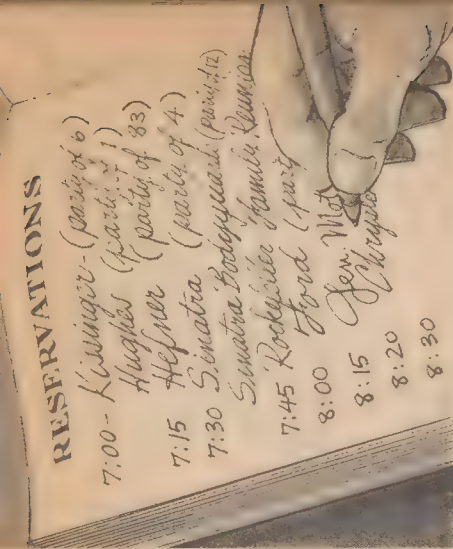 RESERVATIONS
7:00 - Kissinger - (party of 6)
Hughes (party of 1)
7:15 Hefner (party of 83)
7:30 Sinatra (party of 4)
Sinatra Bodyguards (party of 12)
7:45 Rockefeller Family Reunion
8:00 Ford (party
8:15 Gen. Mot
8:20 Chrysle
8:30